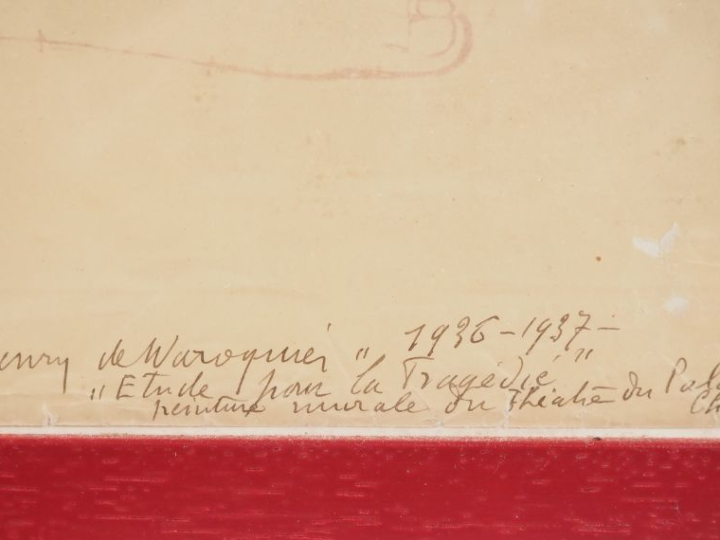 enry de Waroquier " 1936-1937-
"Etude pour la Tragédie"
peinture murale du théatre du Pal
Ch